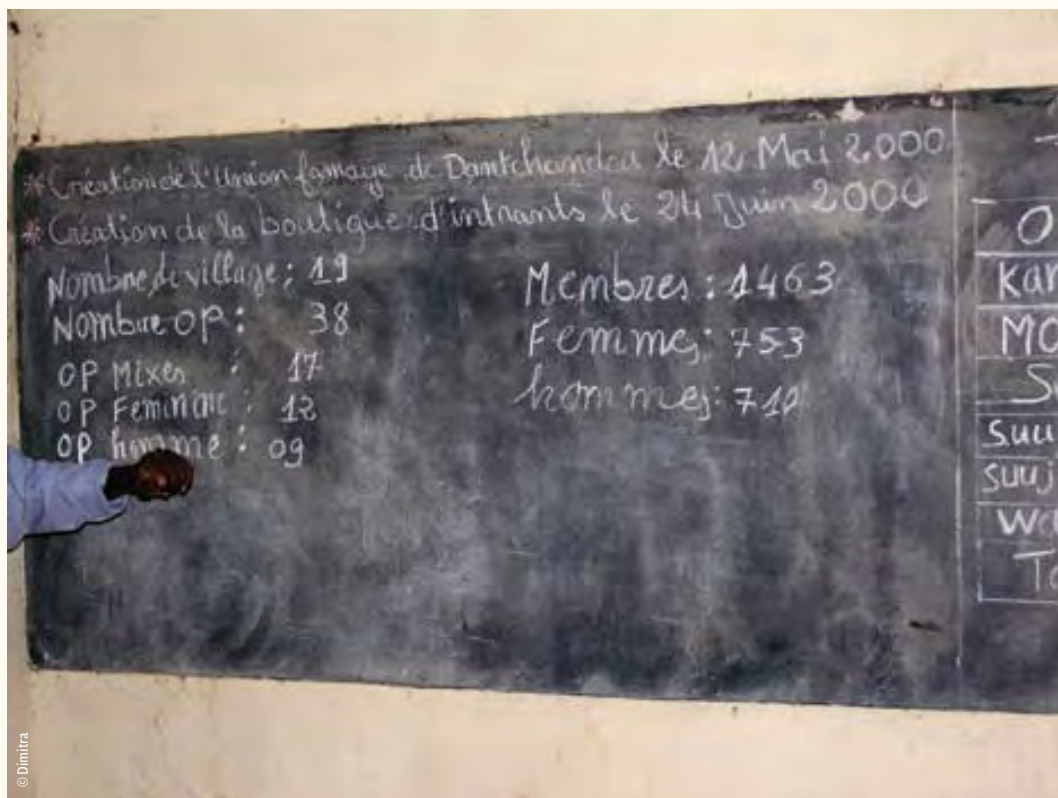 * Création de l'Union famaye de Dantchandou le 12 Mai 2.000
* Création de la boutique d'intrants le 24 Juin 2000
Nombre de village : 19
Nombre OP : 38
OP Mixes : 17
OP Feminine : 12
OP homme : 09
Membres : 1463
Femmes : 753
hommes : 710
O
Kar
MO
S
Suu
suuj
Wa
Ta
© Dimitra